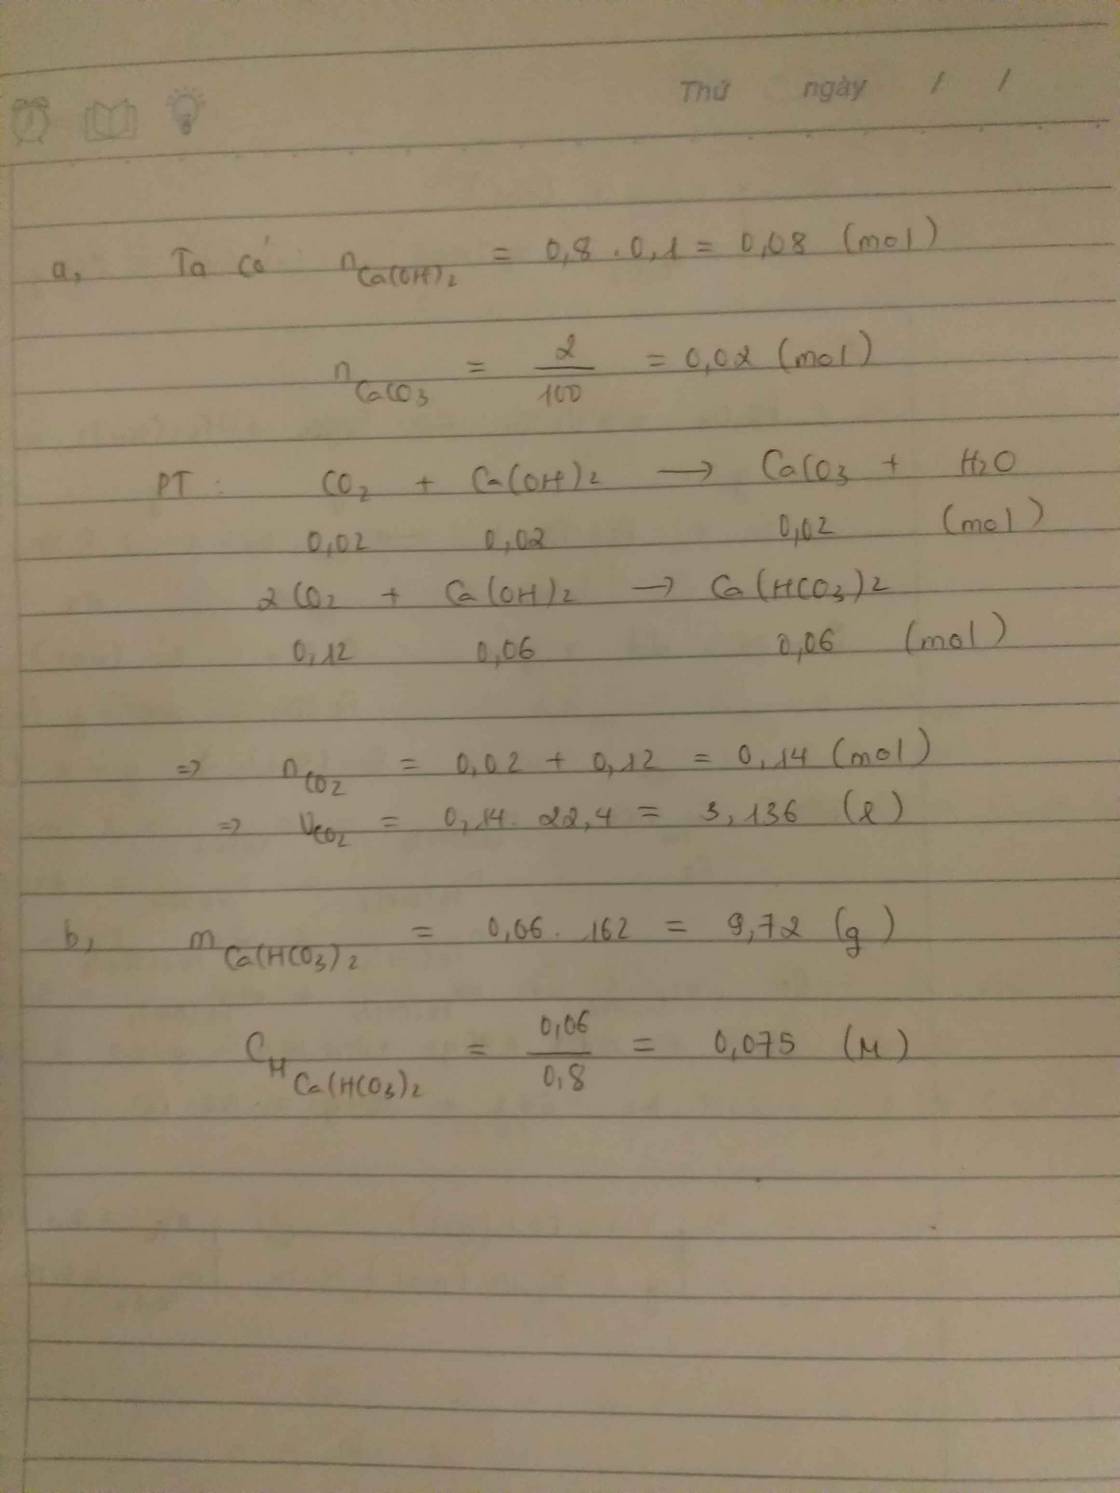 Thứ ngày / /
a, Ta có n Ca(OH)2 = 0,8 . 0,1 = 0,08 (mol)
n CaCO3 = 2/100 = 0,02 (mol)
PT: CO2 + Ca(OH)2 → CaCO3 + H2O
0,02 0,02 0,02 (mol)
2CO2 + Ca(OH)2 → Ca(HCO3)2
0,12 0,06 0,06 (mol)
=> n CO2 = 0,02 + 0,12 = 0,14 (mol)
=> V CO2 = 0,14 . 22,4 = 3,136 (l)
b, m Ca(HCO3)2 = 0,06 . 162 = 9,72 (g)
CM Ca(HCO3)2 = 0,06/0,8 = 0,075 (M)